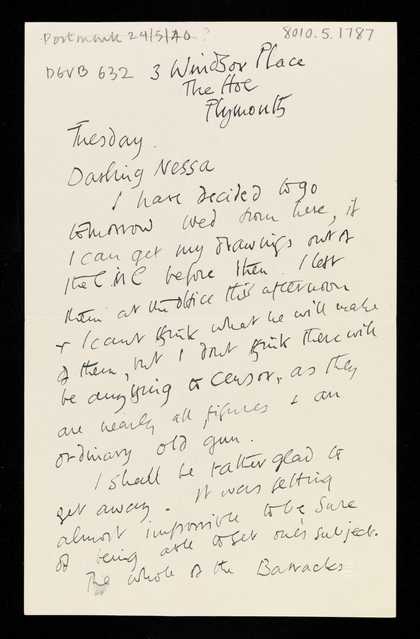 Postmark 24/5/40 ?
8010.5.1787
DGVB 632
3 Windsor Place
The Hoe
Plymouth
Tuesday.
Darling Nessa
I have decided to go
tomorrow Wed from here, if
I can get my drawings out of
the C in C before then. I left
them at the office this afternoon
+ I cant think what he will make
of them, but I dont think there will
be anything to censor, as they
are nearly all figures & an
ordinary old gun.
I shall be rather glad to
get away. It was getting
almost impossible to be sure
of being able to get one's subject.
The whole of the Barracks